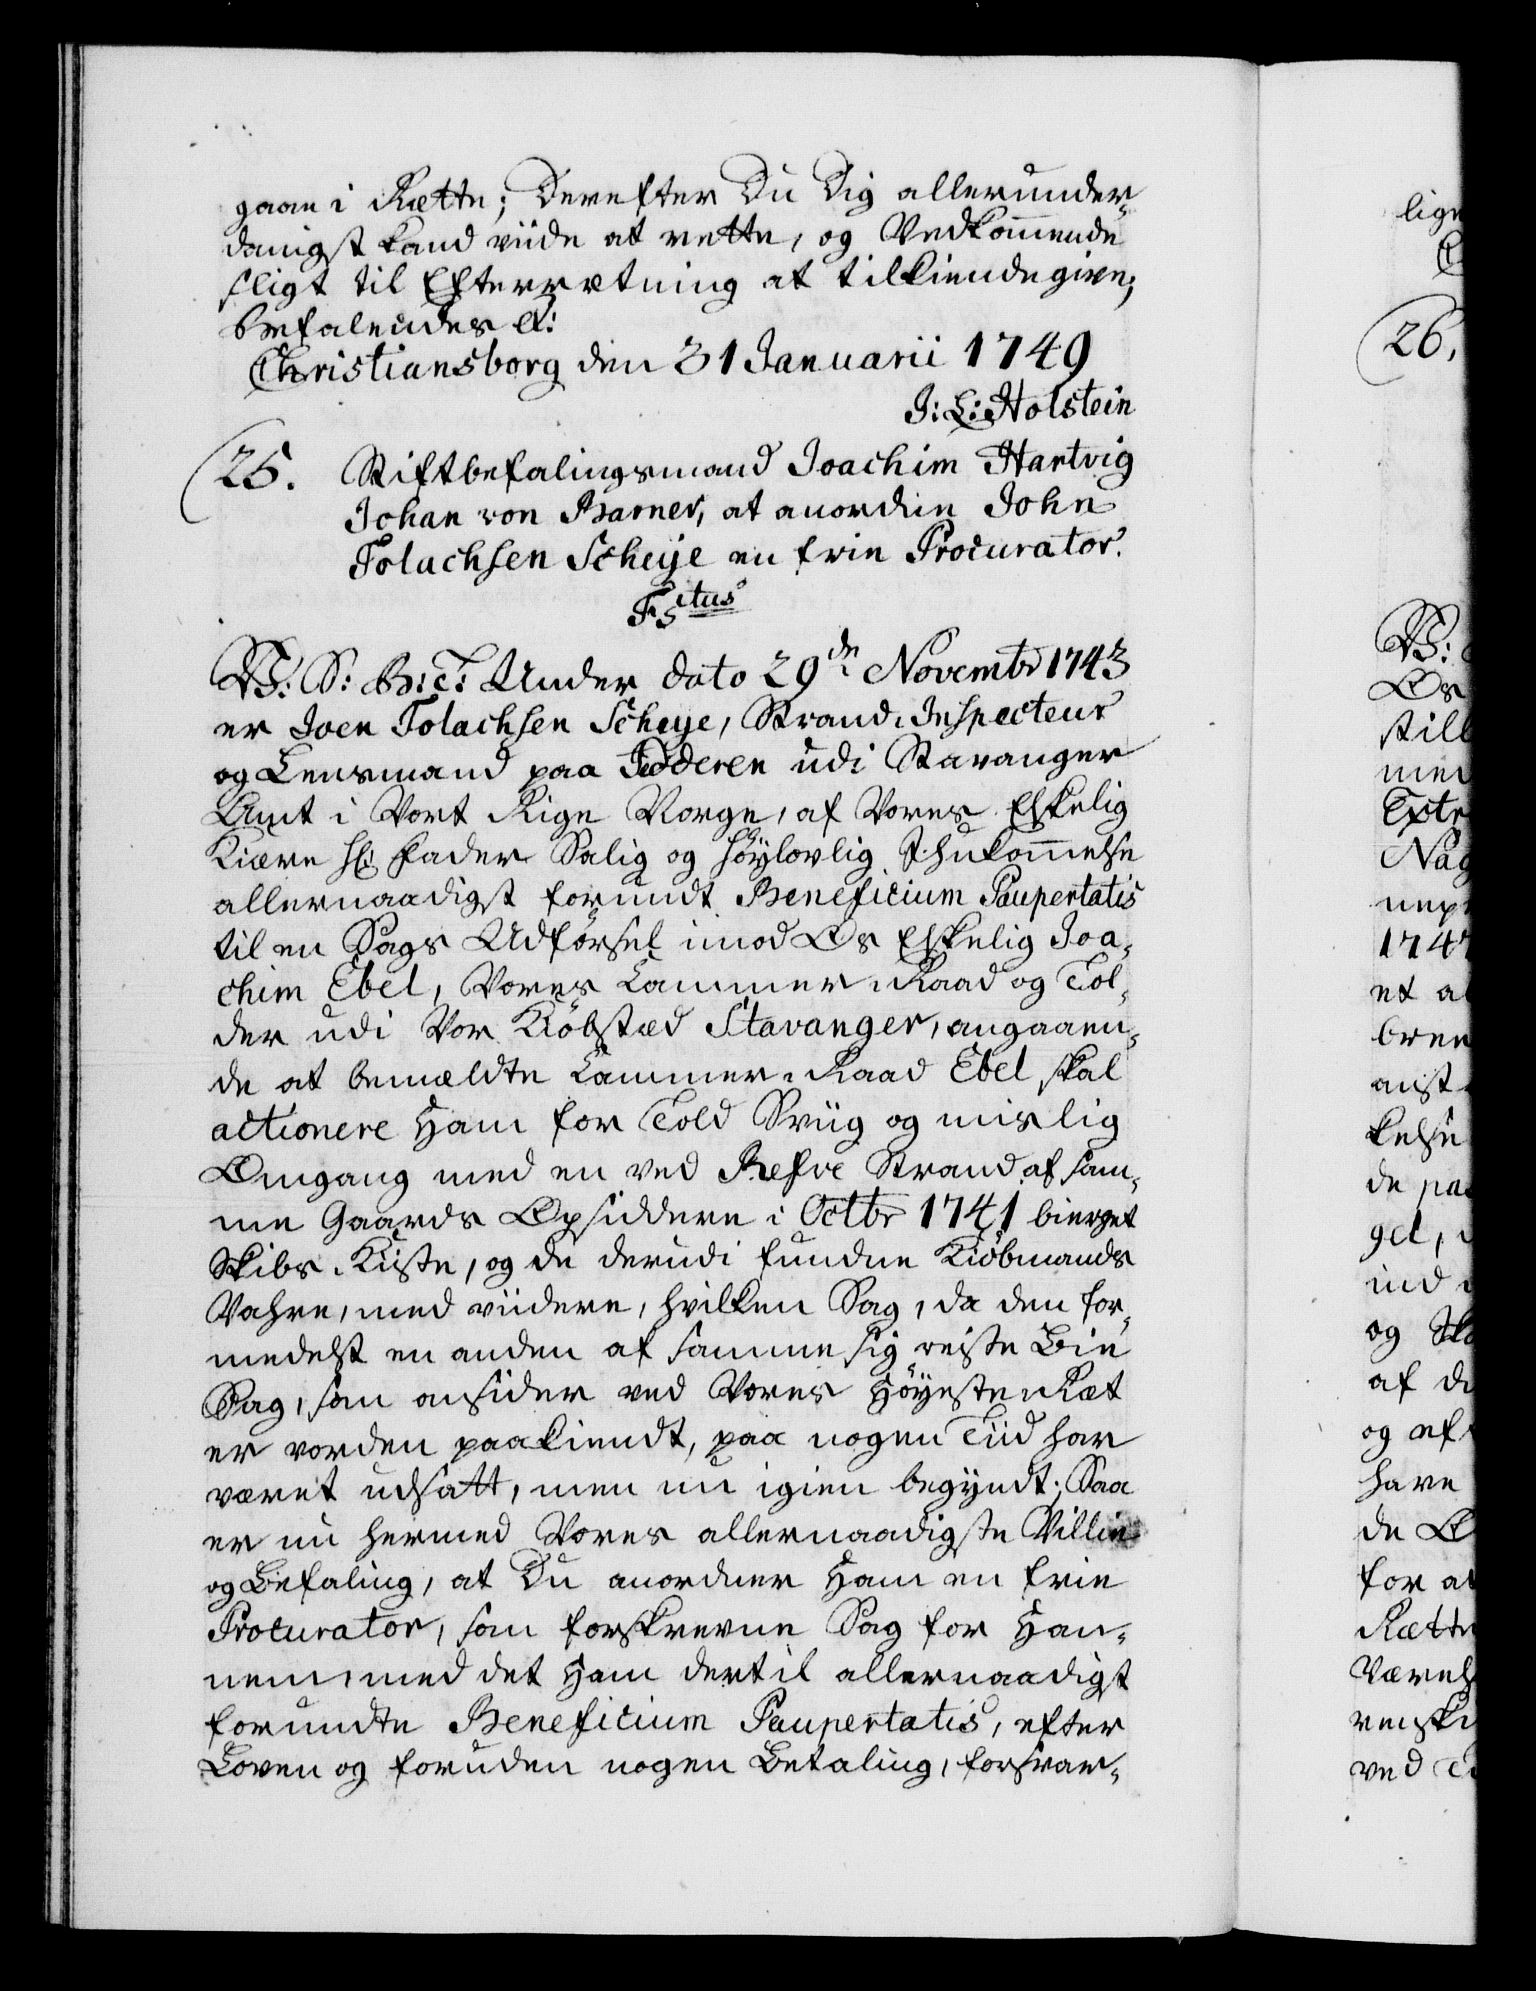 gaae i Rætte; Derefter Du Dig allerunder-
danigst kand viide at rette, og Vedkommende
sligt til Efterretning at tilkiendegive;
befalendes &:
Christiansborg den 31 Januarii 1749
J: L: Holstein
25. Stiftbefalingsmand Joachim Hartvig
Johan von Barner, at anordne John
Tolachsen Scheye en frie Procurator.
F5itus
V: S: G: T: Under dato 29de Novembr 1743
er Joen Tolachsen Scheye, Strand-Inspecteur
og Lensmand paa Jedderen udi Stavanger
Amt i Vort Rige Norge, af Vores Elskelig
Kiære Hr: Fader Salig og höylovlig Ihukommelse
allernaadigst forundt Beneficium Paupertatis
til en Sags Udförsel imod Os Elskelig Joa-
chim Ebel, Vores Cammer-Raad og Tol-
der udi Vor Kiöbstæd Stavanger, angaaen-
de at bemældte Cammer-Raad Ebel skal
actionere Ham for Told Sviig og mislig
Omgang med en ved Refve Strand af sam-
me Gaards Opsiddere i Octbr 1741 bierget
Skibs-Kiste, og de derudi fundne Kiöbmands
Vahre, med viidere, hvilken Sag, da den for-
medelst en anden af samme sig reiste Bie
Sag, som omsider ved Vores Höyeste-Ræt
er vorden paakiendt, paa nogen Tiid har
været udsatt, men nu igien begyndt; Saa
er nu hermed Vores allernaadigste Villie
og Befaling, at Du anordner Ham en frie
Procurator, som forskrevne Sag for Han-
nem, med det Ham dertil allernaadigst
forundte Beneficium Paupertatis, efter
Loven og foruden nogen Betaling, forsvar-
lige
26.
V:
Os
still
med
Extr
Nag
nepr
1747
et a
bree
anst
kelse
de paa
gel,
ind
og Sk
af de
og ef
have
de O
for at
Rætte
Værels
renski
ved